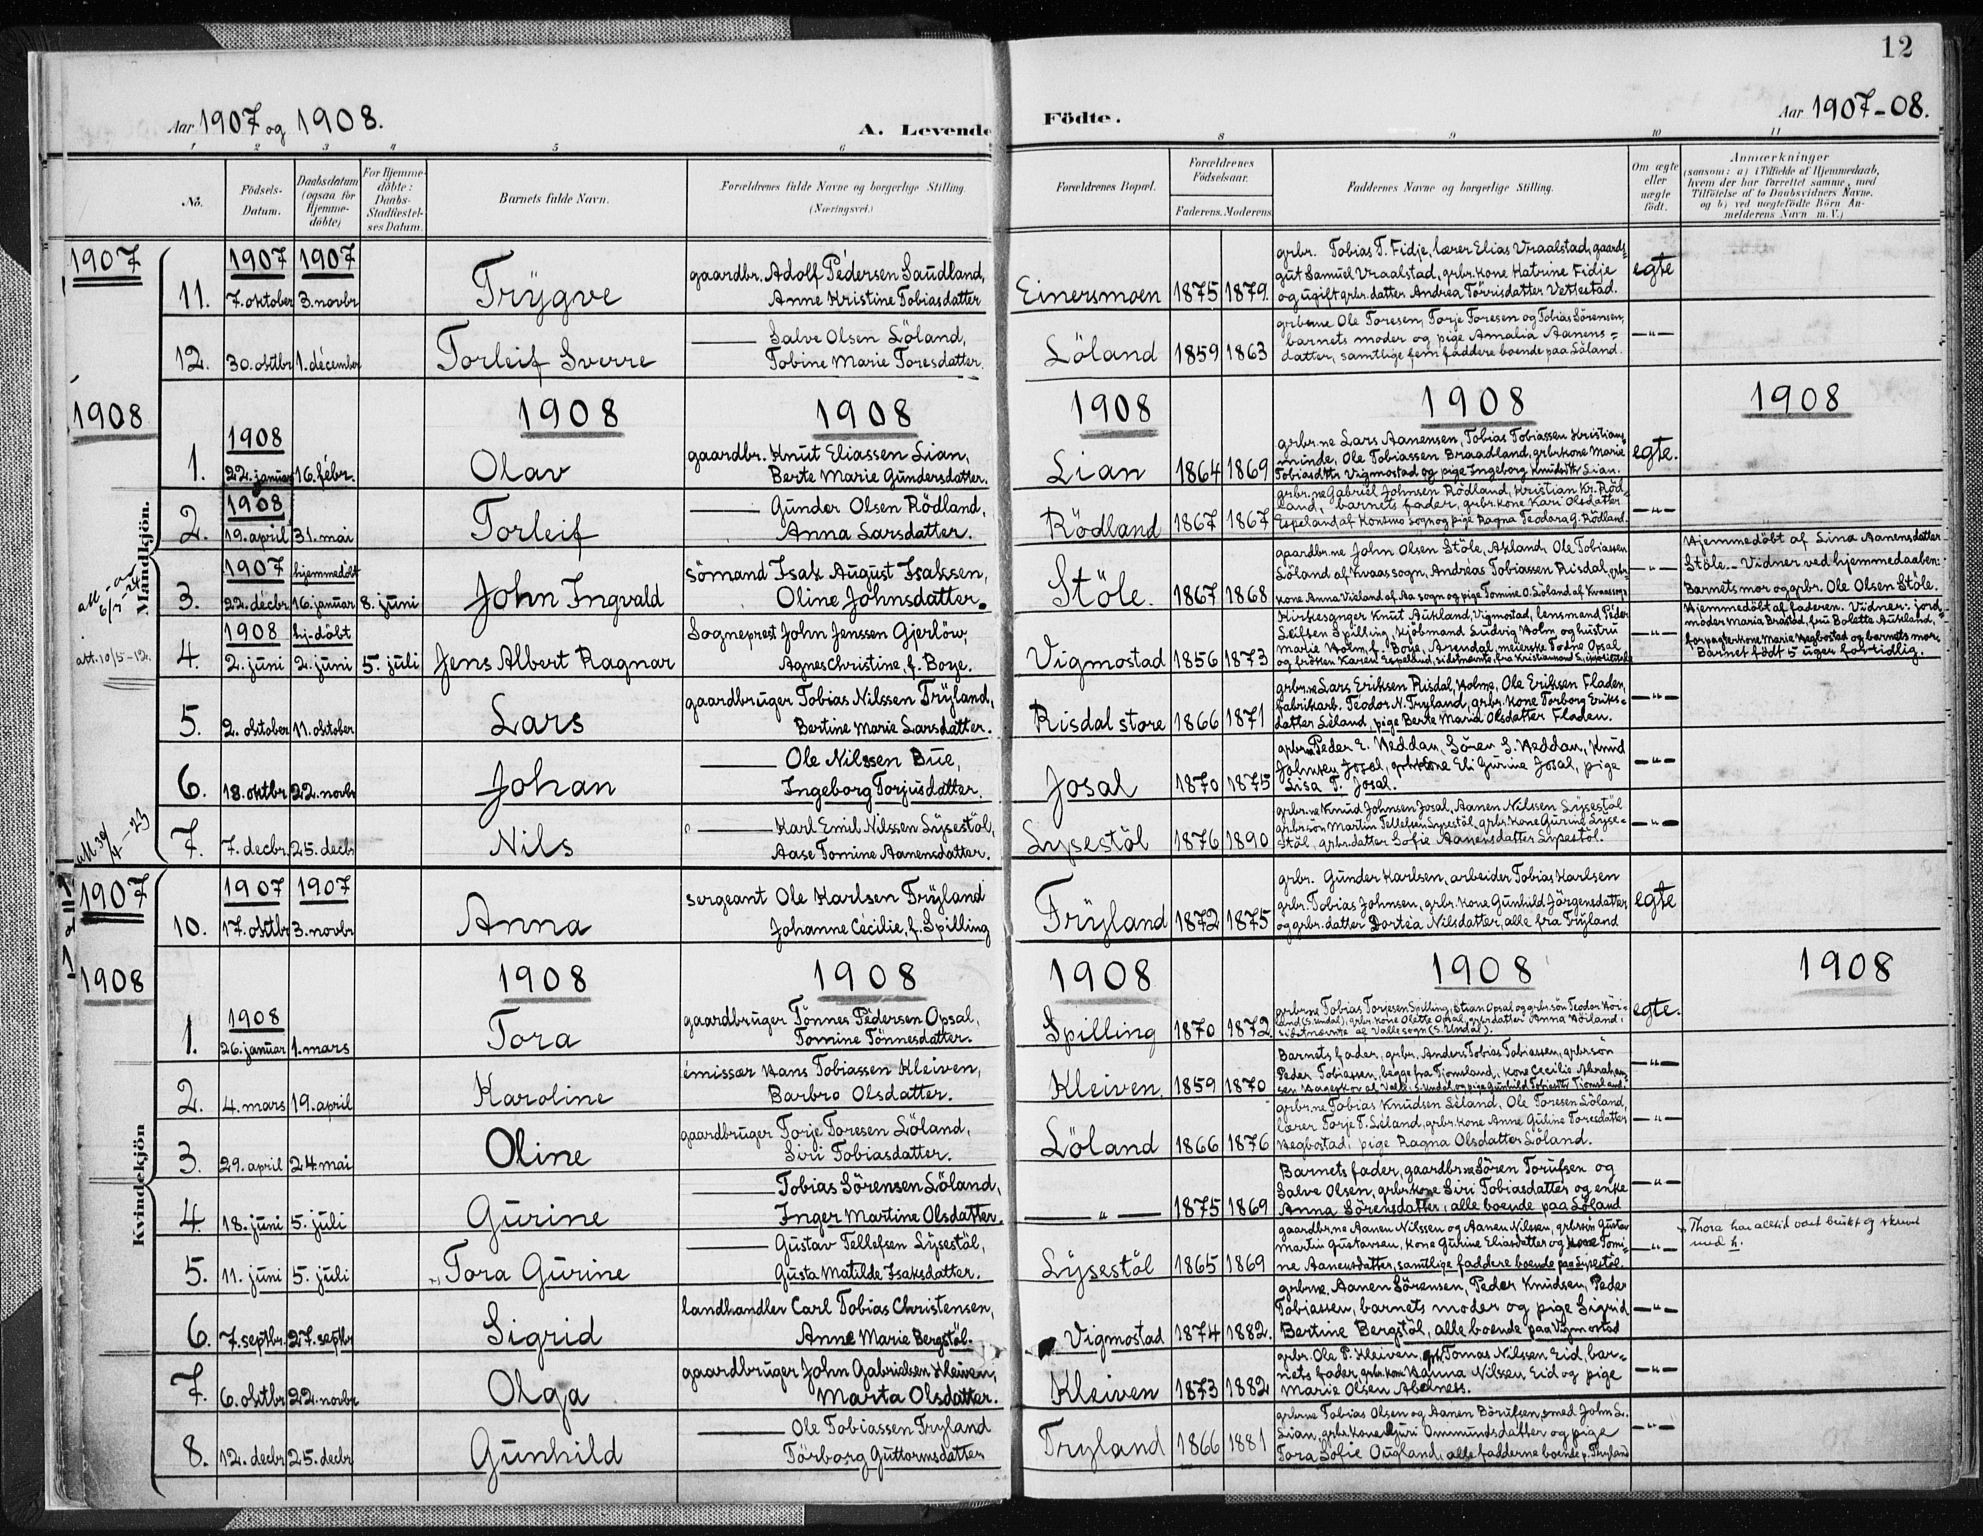 12
Aar 1907 og 1908.
A. Levende
Födte.
Aar 1907-08.
1 2 3 4 5 6 8 9 10 11
No.
Födsels-Datum.
Daabsdatum (ogsaa for Hjemmedöbte)
For Hjemmedöbte: Daabs-Stadfæstelses Datum.
Barnets fulde Navn.
Forældrenes fulde Navne og borgerlige Stilling (Næringsvei.)
Forældrenes Bopæl.
Forældrenes Födselsaar.
Faderens. Moderens
Faddernes Navne og borgerlige Stilling.
Om ægte eller uægte födt.
Anmærkninger
(saasom: a) i Tilfælde af Hjemmedaab,
hvem der har forrettet samme, med
Tilföielse af to Daabsvidners Navne.
og b) ved uægtefödte Börn An-
melderens Navn m. V.)
Mandkjön.
1907
1907 1907
11. 7. oktober 3. novbr Trygve
gaardbr. Adolf Pedersen Saudland,
Anne Kristine Tobiasdatter
Einersmoen 1875 1879.
grbr. Tobias T. Fidje, lærer Elias Vraalstad, gaards-
gut Samuel Vraalstad, grbr. kone Katrine Fidje
og ugift grbr. datter Andrea Törrisdatter Vettestad.
egte
12. 30. oktbr 1. december Torleif Sverre
Salve Olsen Löland,
Tobine Marie Toresdatter.
Löland 1859 1863
grbrne Ole Toresen, Torje Toresen og Tobias Sörensen,
barnets moder og pige Amalia Aanens=
datter, samtlige fem faddere boende paa Löland.
—"—
1908 1908 1908 1908 1908 1908
1908
1. 22. januar 16. febr. Olav
gaardbr. Knut Eliassen Lian,
Berte Marie Gundersdatter.
Lian 1864 1869
grbr.ne Lars Aanensen, Tobias Tobiassen Kristians-
minde, Ole Tobiassen Braadland, grbr kone Marie
Tobiasdtr Vigmostad og pige Ingeborg Knudsdtr Lian.
egte.
1908
2. 19. april 31. mai Torleif
Gunder Olsen Rödland,
Anna Larsdatter.
Rödland 1867 1867
grbr.ne Gabriel Johnsen Rödland, Kristian Kr. Röd-
land, barnets fader, grbr. kone Kari Olsdatter
Espeland af sogn og pige Ragna Teodora G. Rödland.
—"—
1907 hjemmedöbt
3. 22. decbr. 16. januar 8. juni John Ingvald
sömand Isak August Isaksen,
Oline Johnsdatter.
Stöle. 1867 1868
gaardbr.ne John Olsen Stöle, Ole Tobiassen
Löland af Kvaas sogn, Andreas Tobiassen Risdal, grbr-
kone Anna Vieland af Aa sogn og pige Tomine O. Löland af Kvaas sogn
—"—
Hjemmedöbt af Lina Aanensdatter
Stöle. Vidner ved hjemmedaaben:
Barnets mor og grbr. Ole Olsen Stöle.
1908 hj-döbt
att. 10/5-12.
4. 2. juni 2. juni 5. juli Jens Albert Ragnar
Sogneprest John Jenssen Gjerlöw,
Agnes Christine, f. Boye.
Vigmostad 1856 1873
Kirkesanger Knut Aukland, Vigmostad, lensmand Peder
Spilling, kjöbmand Ludvig Holm og hustru
Marie Holm, f. Boye, Arendal, meierske Opsal
og fröken Karen Espelland, sidstnævnte fra Kristiansand S.
—"—
Hjemmedöbt af faderen. Vidner: jord-
moder Maria Brastad, fru Bolette Aukland,
forpagterkone Marie Hegbostad og barnets mor.
Barnet födt 5 uger for tidlig.
5. 2. oktober 11. oktober Lars
gaardbruger Tobias Nilssen Tryland,
Bertine Marie Larsdatter.
Risdal store 1866 1871
grbr.ne Lars Eriksen Risdal, Holme, Ole Eriksen Fladen,
fabrikarb. Teodor N. Tryland, grbr. kone Torborg Eriks=
datter Leland, pige Berte Maria Olsdatter Fladen.
—"—
6. 18. oktbr 22. novbr Johan
Ole Nilssen Bue,
Ingeborg Torjusdatter.
Josal 1870 1875
grbr.ne Peder E. Heddan, Sören S. Heddan, Knud
Johnsen Josal, grbr kone Eli Gurine Josal, pige
Lisa T. Josal.
—"—
att 30/4-23
7. 7. decbr. 25. decbr Nils
Karl Emil Nilssen Lysestöl,
Aase Tomine Aanensdatter.
Lysestöl 1876 1890
grbr.ne Knud Johnsen Josal, Aanen Nilssen Lysestöl
grbr. sön Martin Tellefsen Lysestöl, grbr. kone Gurine Lyse-
stöl, grbr. datter Sofie Aanensdatter Lysestöl.
—"—
Kvindekjön
1907
1907 1907
10. 17. oktbr 3. novbr Anna
sergeant Ole Karlsen Tryland
Johanne Cecilie, f. Spilling
Tryland 1872 1875
grbr. Gunder Karlsen, arbeider Tobias Karlsen
grbr. Tobias Johnsen, grbr. kone Gunhild Jörgensdatter
og grbr. datter Dortea Nilsdatter, alle fra Tryland
egte
1908 1908 1908 1908 1908 1908
1908
1. 26. januar 1. mars Tora
gaardbruger Tönnes Pedersen Opsal,
Tomine Tönnesdatter.
Spilling 1870 1872.
grbr.ne Tobias Torjesen Spilling, Stian Opsal og grbr. sön Teodor Höi-
land (S. Undal), grbr. kone Olette Opsal, grbr datter Anna Höiland,
sidstnævnte af Valle sogn (S. Undal).
egte.
2. 4. mars 19. april Karoline
emissær Hans Tobiassen Kleiven,
Barbro Olsdatter.
Kleiven. 1859 1870
Barnets fader, grbr. Anders Tobias Tobiassen, grbr sön
Peder Tobiassen, begge fra Tjomsland, kone Cecilie Abraham-
sen af Valle, S. Undal og pige Gunhild Tobiasdtr Tjomsland.
—"—
3. 29. april 24. mai Oline
gaardbruger Torje Toresen Löland,
Siri Tobiasdatter.
Löland 1866 1876
grbr.ne Tobias Knudsen Leland, Ole Toresen Löland,
lærer Torje T. Leland, grbr. kone Anne Guline Toresdatter
Hegbostad, pige Ragna Olsdatter Löland.
—"—
4. 18. juni 5. juli Gurine
Tobias Sörensen Löland,
Inger Martine Olsdatter.
—"— 1875 1869
Barnets fader, gaardbr.ne Sören Torufsen og
Salve Olsen, grbr. kone Siri Tobiasdatter og enke
Anna Sörensdatter, alle boende paa Löland
—"—
5. 11. juni 5. juli Tora Gurine
Gustav Tellefsen Lysestöl,
Gusta Matilde Isaksdatter.
Lysestöl 1865 1869
gaardbr.ne Aanen Nilssen og Aanen Nilsen, grbr sön Gustav
Martin Gustavsen, kone Gurine Eliasdatter og kone Tomi-
ne Aanensdatter, samtlige faddere boende paa Lysestöl.
—"—
Thora har altid vært brukt og skrevet
med h.
6. 7. septbr. 27. septbr Sigrid
landhandler Carl Tobias Christensen,
Anne Marie Bergstöl.
Vigmostad 1874 1882.
grbr.ne. Aanen Sörensen, Peder Knudsen, Peder
Tobiassen, barnets moder og pige Sigrid
Bertine Bergstöl, alle boende paa Vigmostad
—"—
7. 6. oktbr 22. novbr Olga
gaardbruger John Gabrielsen Kleiven,
Marta Olsdatter.
Kleiven 1873 1882
grbr. Ole P. Kleiven, Tomas Nilssen Eid, bar=
nets fader, grbr. kone Hanna Nilssen Eid og pige
Marie Olsen Abelness.
—"—
8. 12. decbr 25. decbr Gunhild
Ole Tobiassen Tryland
Törborg Guttormsdatter
Tryland 1866 1881
grbrne Tobias Olsen og Aanen Börufsen, smed John L.
Lian, grbr. kone Guri Ommundsdatter og pige
Tora Sofie Ougland, alle fadderne boende p. Tryland
—"—